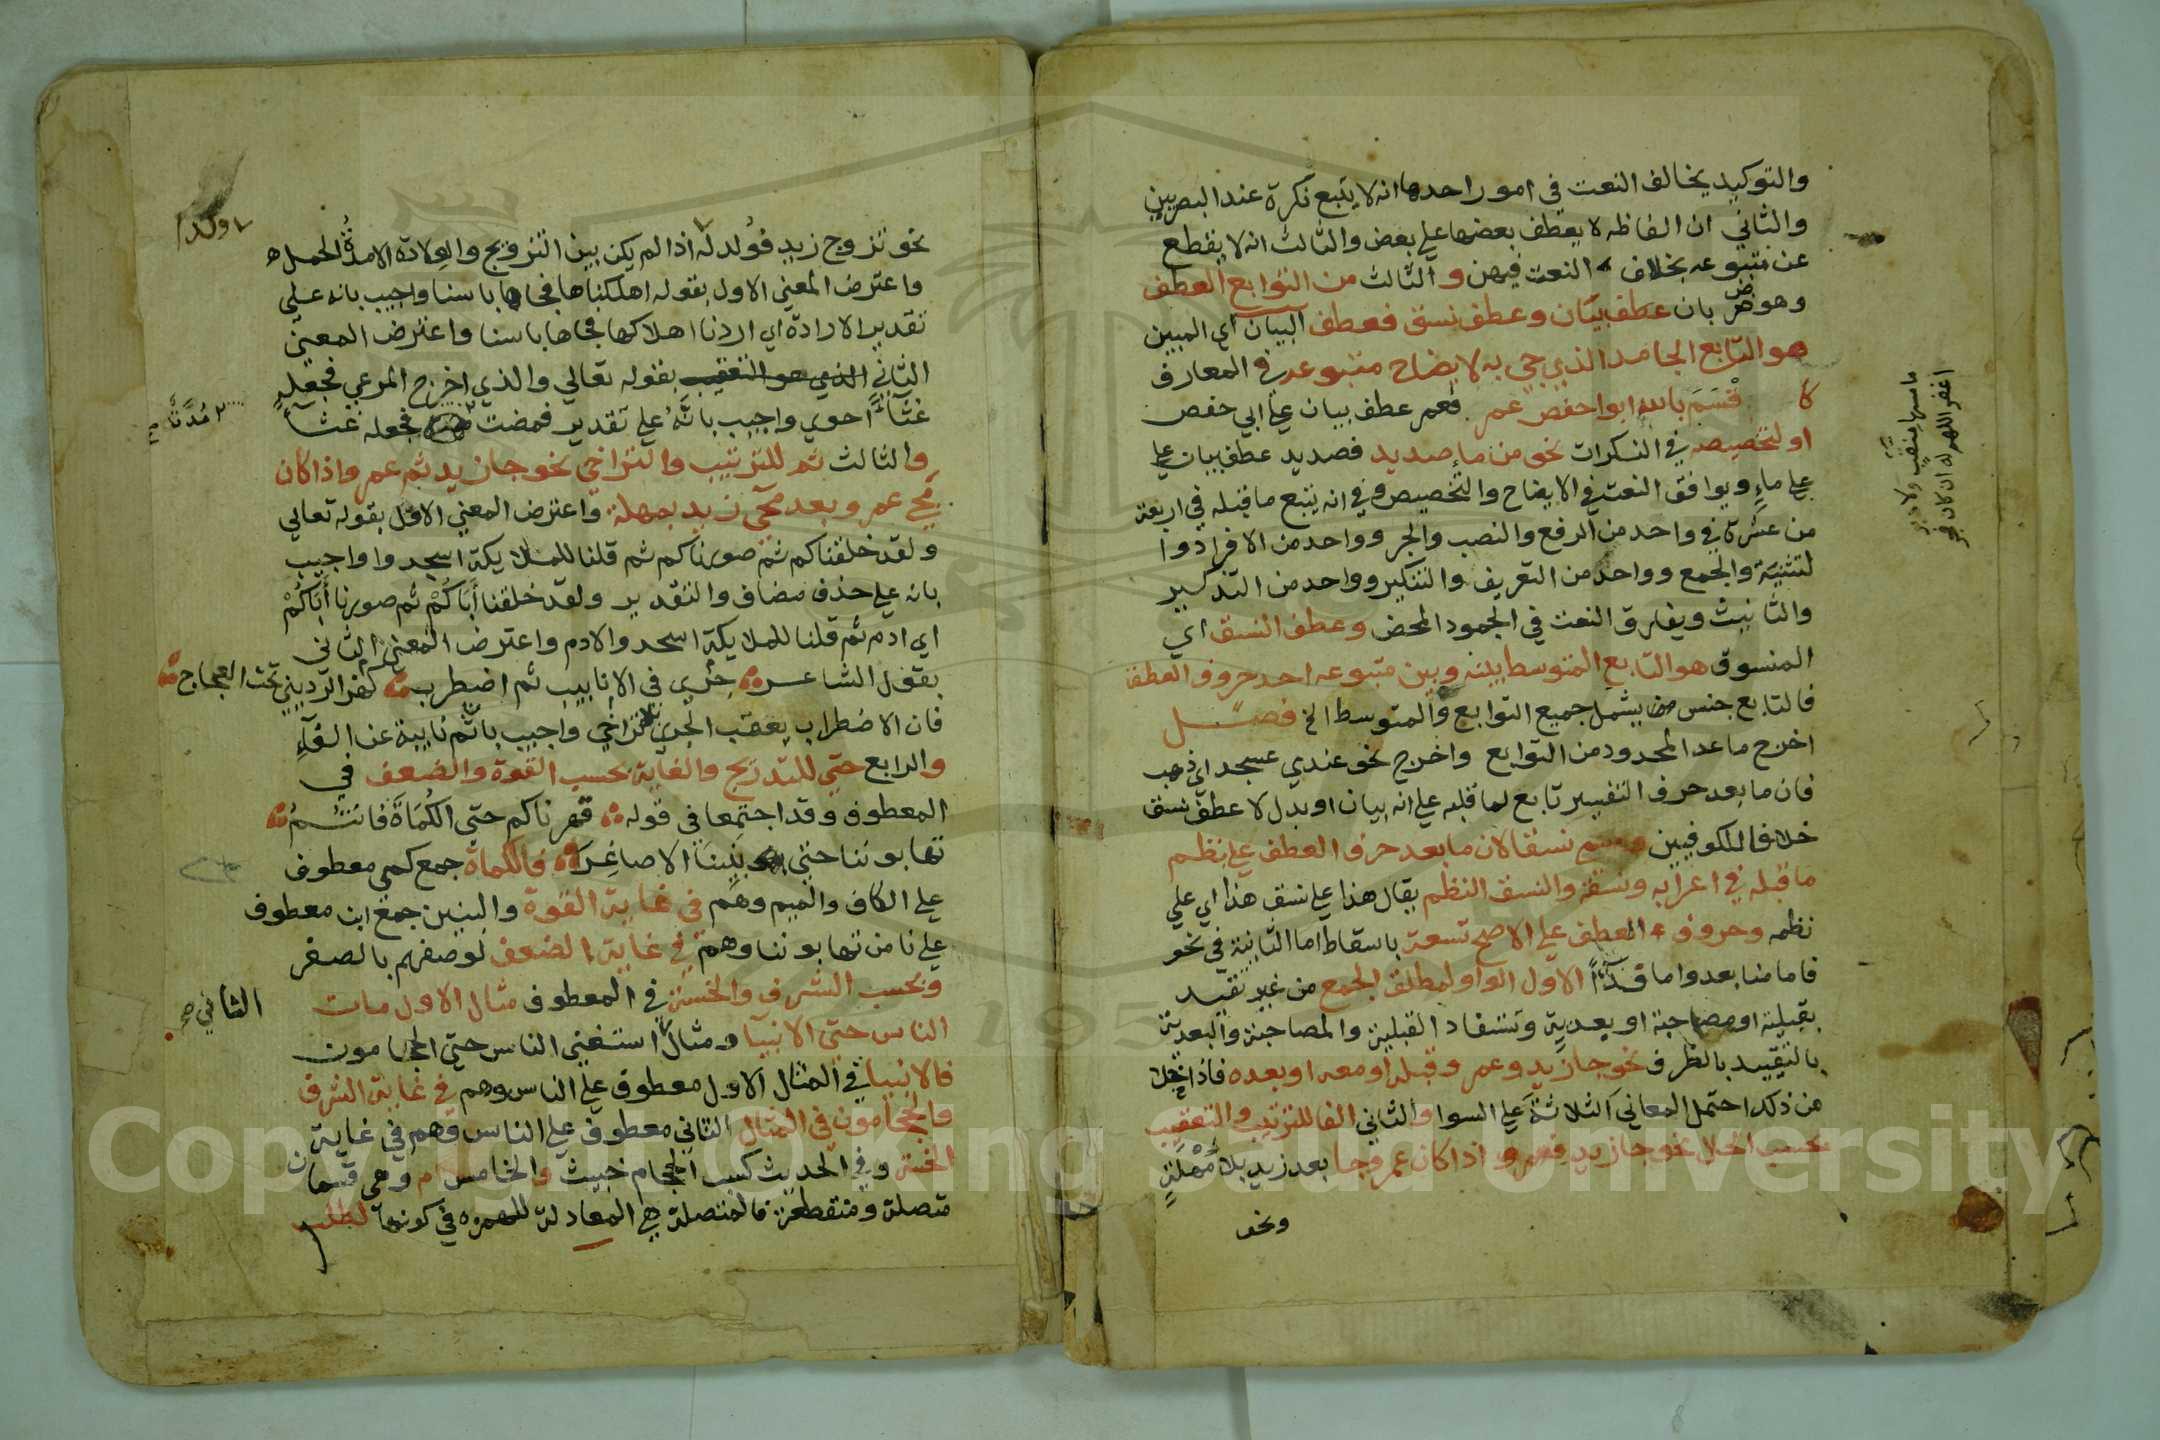 والتوكيد يخالف النعت في امور احدها انه لا يتبع نكرة عند البصريين
والثاني ان الفاظه لا يعطف بعضها علي بعض والثالث انه لا يقطع
عن متبوعه بخلاف النعت فيهن والثالث من التوابع العطف
وهو ضربان عطف بيان وعطف نسق فعطف البيان اي المبين
هو التابع الجامد الذي جي به لايضاح متبوعه في المعارف
كا قسم بالله ابوا حفص عمر فعمر عطف بيان علي ابي حفص
او لتخصيصه في النكرات نحو من ماء صديد فصديد عطف بيان علي
علي ماء ويوافق النعت في الايضاح والتخصيص وفي انه يتبع ما قبله في اربعة
من عشرة في واحد من الرفع والنصب والجر وواحد من الافراد وا
لتثنية والجمع وواحد من التعريف والتنكير وواحد من التذكير
والتانيث ويفارق النعت في الجمود المحض وعطف النسق اي
المنسوق هو التابع المتوسط بينه وبين متبوعه احد حروف العطف
فالتابع جنس يشمل جميع التوابع والمتوسط الخ فصل
اخرج ماعدا المحدود من التوابع واخرج نحو عندي عسجد اي ذهب
فان ما بعد حرف التفسير تابع لما قبله علي انه بيان او بدل لا عطف نسق
خلافا للكوفيين نسقا لان ما بعد حرف العطف علي نظم
ما قبله في اعرابه ونسقه والنسق النظم يقال هذا علي نسق هذا اي علي
نظمه وحروف العطف علي الاصح تسعة باسقاط اما الثانية في نحو
فاما منا بعد واما فداء الاول الواو لمطلق الجمع من غير تقييد
بقبلية او مصاحبة او بعدية وتستفاد القبلية والمصاحبة والبعدية
بالتقييد بالظرف نحو جا زيد وعمر وقبله او معه او بعده فاذا خلا
من ذلك احتمل المعاني الثلاثة علي السوا والثاني الفا للترتيب والتعقيب
بحسب الحال نحو جا زيد فعمرو اذا كان عمر وجا بعد زيد بلا مهلة
ونحو
نحو تزوج زيد فولد له اذا لم يكن بين التزويج والولادة الا مدة الحمل
ولدا
واعترض المعني الاول بقوله اهلكناها فجاها باسنا واجيب بانه علي
تقدير الارادة اي اردنا اهلاكها فجاها باسنا واعترض المعني
الثاني الذي هو التعقيب بقوله تعالي والذي اخرج المرعي فجعله
غثآء احوي واجيب بانه علي تقدير فمضت فجعله غثآ
مدة
والثالث ثم للترتيب والتراخي نحو جا زيد ثم عمر واذا كان
مجي عمر وبعد مجي زيد بمهلة واعترض المعني الاول بقوله تعالي
ولقد خلقناكم ثم صورناكم ثم قلنا للملايكة اسجدوا واجيب
بانه علي حذف مضاف والتقدير ولقد خلقنا أباكم ثم صورنا أباكم
اي ادم ثم قلنا للملايكة اسجدوا لادم واعترض المعني الثاني
بقول الشاعر كهز الرديني تحت العجاج جري في الانابيب ثم اضطرب
فان الاضطراب يعقب الجري بلا تراخي واجيب بان ثم نايبة عن الفآء
والرابع حتي للتدريج والغاية بحسب القوة والضعف في
المعطوف وقد اجتمعا في قوله قهرناكم حتي الكماة فانتم
تهابوننا حتي بنينا الاصاغرا فالكماة جمع كمي معطوف
علي الكاف والميم وهم في غاية القوة والبنين جمع ابن معطوف
علي نا من تهابوننا وهم في غاية الضعف لوصفهم بالصغر
وبحسب الشرف والخسة في المعطوف مثال الاول مات
الناس حتي الانبيا ومثال استغني الناس حتي الحجامون
الثاني
فالانبيا في المثال الاول معطوف علي الناس وهم في غاية الشرف
والحجامون في المثال الثاني معطوف علي الناس وهم في غاية
الخسة وفي الحديث كسب الحجام خبيث والخامس ام وهي قسمان
متصلة ومنقطعة فالمتصلة هي المعادلة للهمزه في كونها لطلب
Copyright © King Saud University